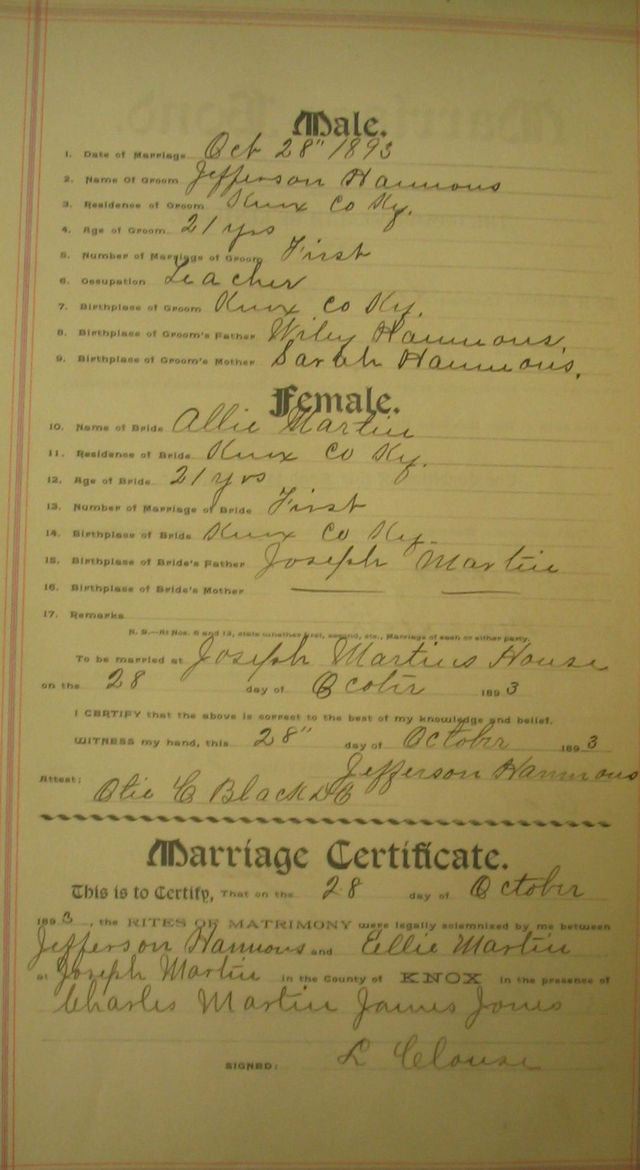 Male.
1. Date of Marriage Oct 28" 1893
2. Name Of Groom Jefferson Hammons
3. Residence of Groom Knox Co Ky.
4. Age of Groom 21 yrs
5. Number of Marriage of Groom First
6. Occupation Teacher
7. Birthplace of Groom Knox Co Ky.
8. Birthplace of Groom's Father Wiley Hammons.
9. Birthplace of Groom's Mother Sarah Hammons.
Female.
10. Name of Bride Allie Martin
11. Residence of Bride Knox Co Ky.
12. Age of Bride 21 yrs
13. Number of Marriage of Bride First
14. Birthplace of Bride Knox Co Ky.
15. Birthplace of Bride's Father Joseph Martin
16. Birthplace of Bride's Mother
17. Remarks
N. B.—At Nos. 5 and 13, state whether first, second, etc., Marriage of each or either party.
To be married at Joseph Martins House
on the 28 day of October 1893
I CERTIFY that the above is correct to the best of my knowledge and belief.
WITNESS my hand, this 28" day of October 1893
Jefferson Hammons
Attest: Otie C Black DC
Marriage Certificate.
This is to Certify, That on the 28 day of October
1893, the RITES OF MATRIMONY were legally solemnized by me between
Jefferson Hammons and Ellie Martin
at Joseph Martin in the County of KNOX in the presence of
Charles Martin James Jones
SIGNED: L Clouse